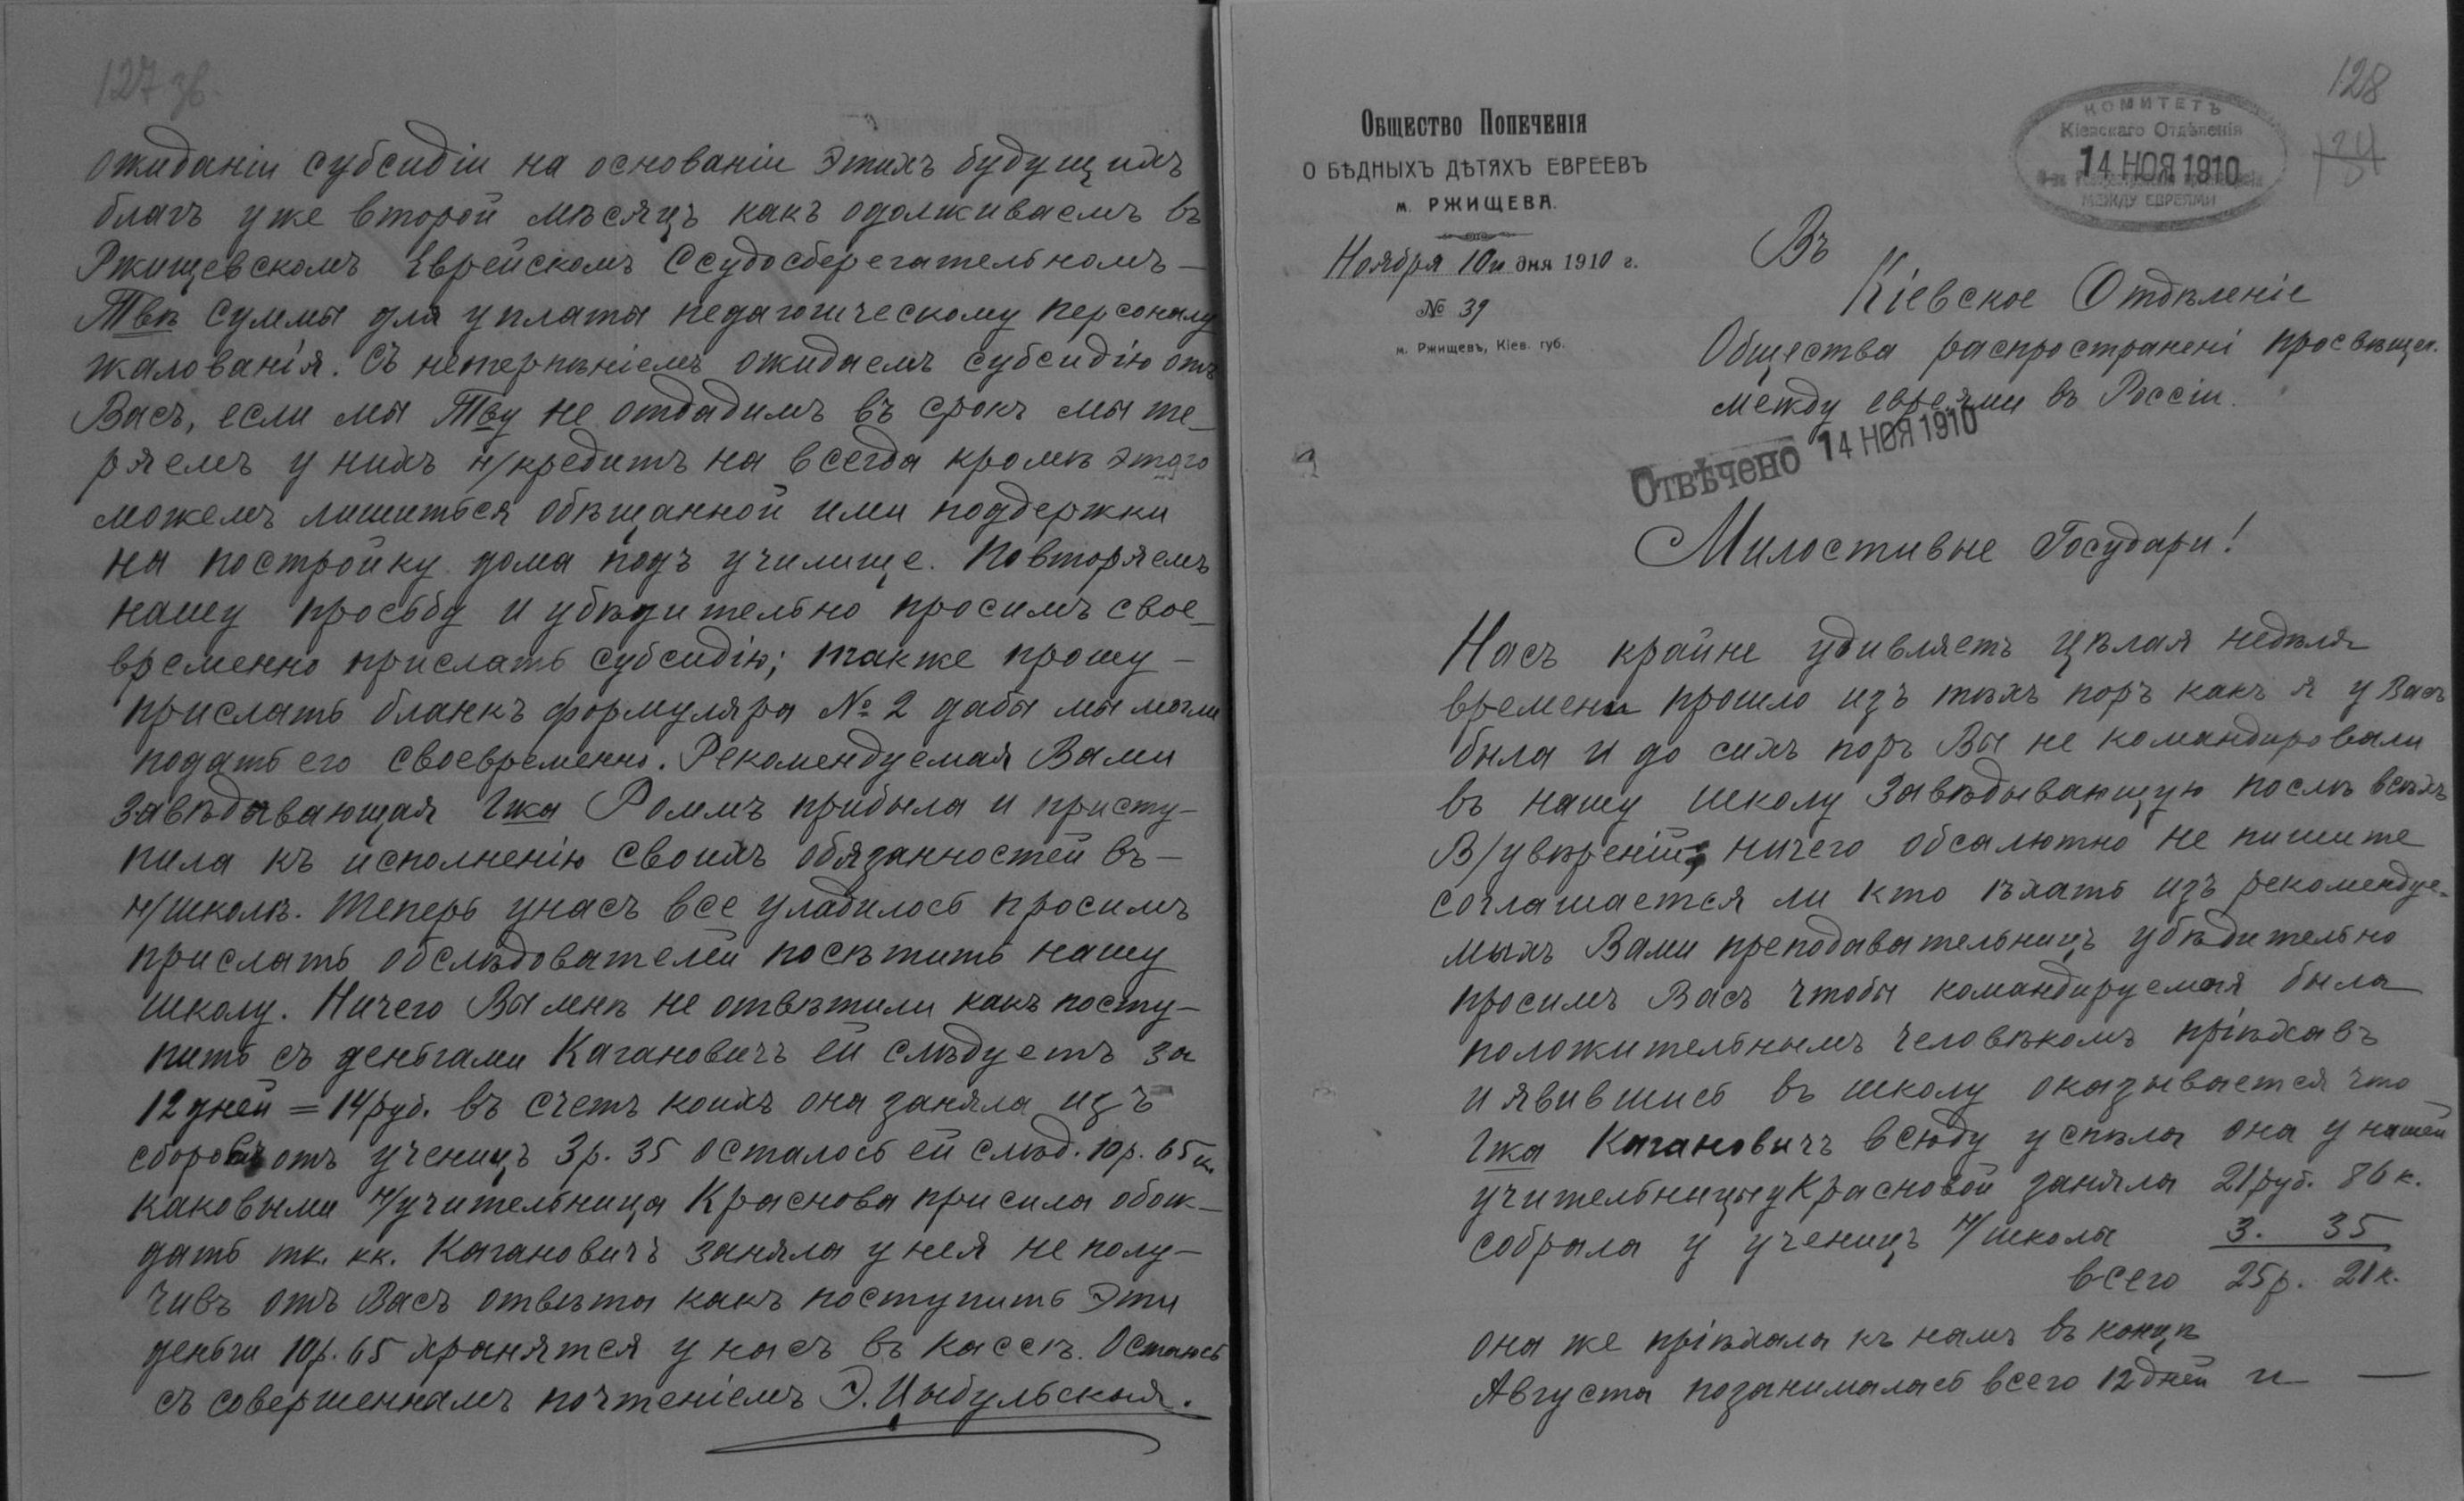 127 зв.
ожиданіи субсидіи на основаніи этихъ будущихъ
благъ уже второй мѣсяцъ какъ одолживаемъ въ
Ржищевскомъ Еврейскомъ Ссудосберегательномъ —
Твѣ суммы для уплаты педагогическому персоналу
жалованія. Съ нетерпѣніемъ ожидаемъ субсидію отъ
Васъ, если мы Тву не отдадимъ въ срокъ мы те-
ряемъ у нихъ н/кредитъ на всегда кромѣ этого
можемъ лишиться обѣщанной ими поддержки
на постройку дома подъ училище. Повторяемъ
нашу просьбу и убѣдительно просимъ свое-
временно прислать субсидію; также прошу —
прислать бланкъ формуляра № 2 дабы мы могли
подать его своевременно. Рекомендуемая Вами
завѣдавающая Гжа Роммъ прибыла и присту-
пила къ исполненію своихъ обязанностей въ —
н/школѣ. Теперь унасъ все уладилось просимъ
прислать обслѣдователей посѣтить нашу
школу. Ничего Вы мнѣ не отвѣтили какъ посту-
пить съ деньгами Кагановичъ ей слѣдуетъ за
12 дней = 14 руб. въ счетъ коихъ она заняла изъ
сборовъ отъ ученицъ 3 р. 35 осталось ей слѣд. 10 р. 65 к.
каковыми н/учительница Краснова присила обож-
дать тк. кк. Кагановичъ заняла у нея не полу-
чивъ отъ Васъ отвѣта какъ поступить эти
деньги 10 р. 65 хранятся у насъ въ кассѣ. Остаюсь
съ совершеннымъ почтеніемъ Э. Цыбульская.
128
Общество Попеченія
О БѢДНЫХЪ ДѢТЯХЪ ЕВРЕЕВЪ
м. РЖИЩЕВА.
Ноября 10 дня 1910 г.
№ 39
м. Ржищевъ, Кіев. губ.
КОМИТЕТЪ
Кіевскаго Отдѣленія
14 НОЯ 1910
МЕЖДУ ЕВРЕЯМИ
Въ
Кіевское Отдѣленіе
Общества распространені просвѣщен.
между евреями въ Россіи.
Отвѣчено 14 НОЯ 1910
Милостивые Государи!
Насъ крайне удивляетъ цѣлая недѣля
времени прошло изъ тѣхъ поръ какъ я у Васъ
была и до сихъ поръ Вы не командировали
въ нашу школу завѣдывающую послѣ всѣхъ
В/увѣреній, ничего обсалютно не пишите
соглашается ли кто ѣхать изъ рекомендуе-
мыхъ Вами преподавательницъ убѣдительно
просимъ Васъ чтобы командируемая была
положительнымъ человѣкомъ пріѣхавъ
и явившись въ школу оказывается что
Гжа Кагановичъ всюду успѣла она у нашей
учительницы у Красновой заняла 21 руб. 86 к.
собрала у ученицъ н/школы 3. 35
всего 25 р. 21 к.
она же пріѣхала къ намъ въ концѣ
Августа позанималась всего 12 дней и —